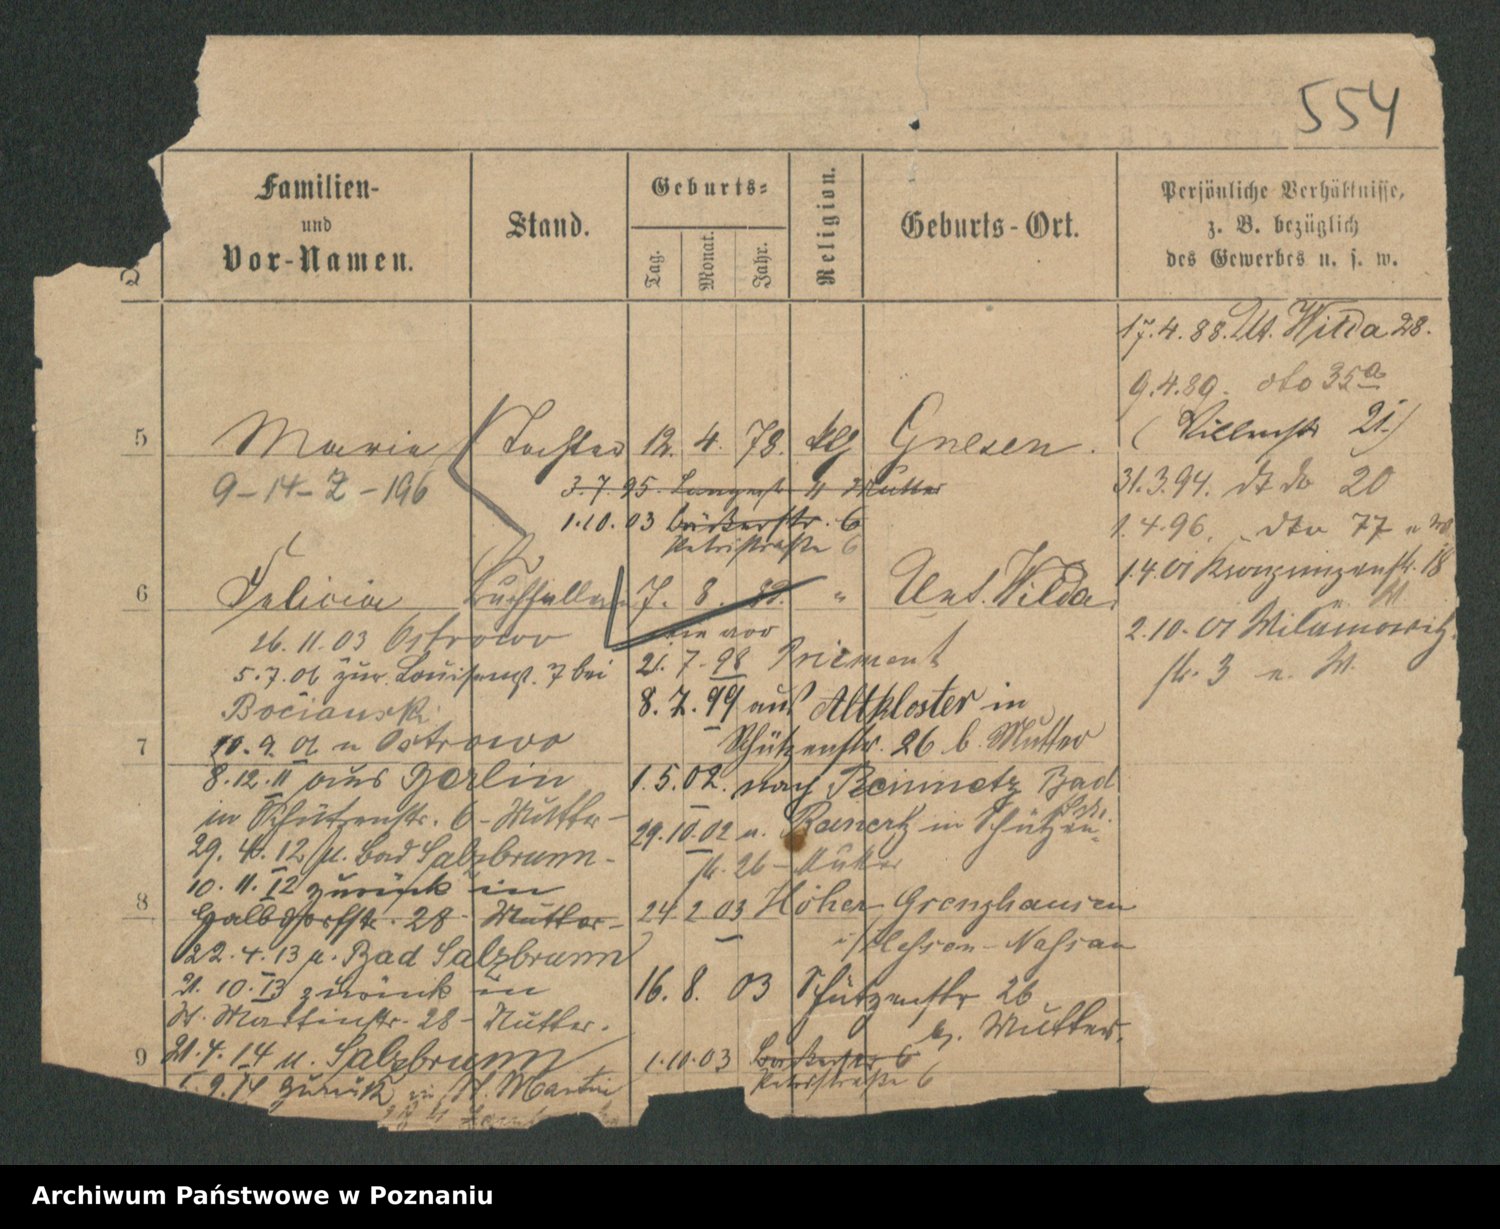 554
Familien-
und
Vor-Namen.
Stand.
Geburts-
Tag.
Monat.
Jahr.
Religion.
Geburts-Ort.
Persönliche Verhältnisse,
z. B. bezüglich
des Gewerbes u. s. w.
17.4.88. Ut. Wilda 28.
9.4.89. dto 35a
21.)
5 Marie Tochter 12. 4. 78. klg Gnesen.
9-14-Z-196
3.7.95. Mutter
31.3.94. 20
1.10.03 Bäckerstr. 6
Petristraße 6
1.4.96. dto 77
6 Felicia Buchhalterin 7. 8. 82. " Unt. Wilda.
1.4.01 18
26.11.03 Ostrowo
2.10.01 Wilamowitz-
str. 3
5.7.06 zur Louisenstr. 7 bei
Bocianski
21. 7. 98 Priement
8. 7. 99 aus Altkloster in
Schützenstr. 26 b. Mutter
7
10.9.06 n Ostrowo
8.12.11 aus Berlin
in Schützenstr. 6 - Mutter -
1.5.02. nach Reinnetz Bad
29.10.02 in Schützen-
str. 26 - Mutter
29.4.12 n. Bad Salzbrunn -
10.11.12 zurück in
8
Halbdorfstr. 28 - Mutter -
24 2 03 Höher Grenzhausen
i/Hessen-Nassau
22.4.13 n. Bad Salzbrunn
21.10.13 zurück in
St. Martinstr. 28 - Mutter.
16. 8. 03 Schützenstr 26
b. Mutter.
9
21.4.14 n. Salzbrunn
1.10.03 Bäckerstr 6
Petristraße 6
1.9.14 zurück in St. Martin
Archiwum Państwowe w Poznaniu